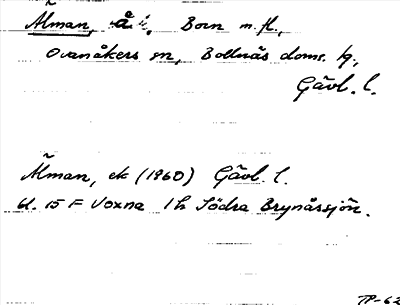 Ålman, å i. Born m. fl.,
Ovanåkers sn, Bollnäs doms. hg.,
Gävl. l.
Ålman, ek (1960) Gävl. l.
bl. 15 F Voxna 1 h Södra Brynåssjön.
TP-62